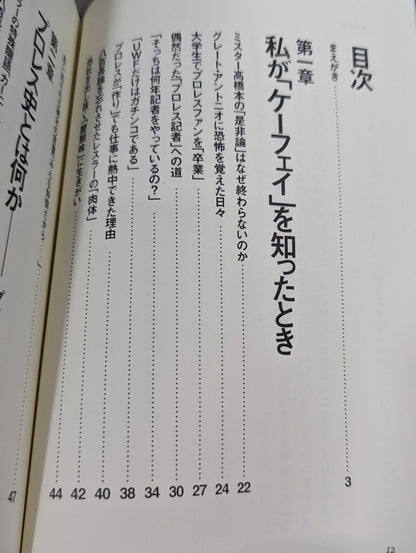 目次
まえがき 3
第一章
私が「ケーフェイ」を知ったとき
ミスター高橋本の「是非論」はなぜ終わらないのか 22
グレート・アントニオに恐怖を覚えた日々 24
大学生でプロレスファンを「卒業」 27
偶然だった「プロレス記者」への道 30
「そっちは何年記者をやっているの？」 34
「UWFだけはガチンコである」 38
プロレスが「作り」でも仕事に熱中できた理由 40
八百長論を忘れさせたレスラーの「肉体」 42
「醍醐味」に生きがい 44
第二章
プロレス とは何か
47
12